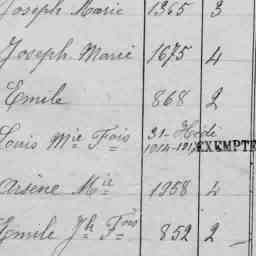 Joseph Marie 1365 3
Joseph Marie 1675 4
Emile 868 2
Louis Mie Fois 31- Hédé
1914-1917 EXEMPTÉ
Arsène Mie 1958 4
Emile Jh Fois 852 2 –